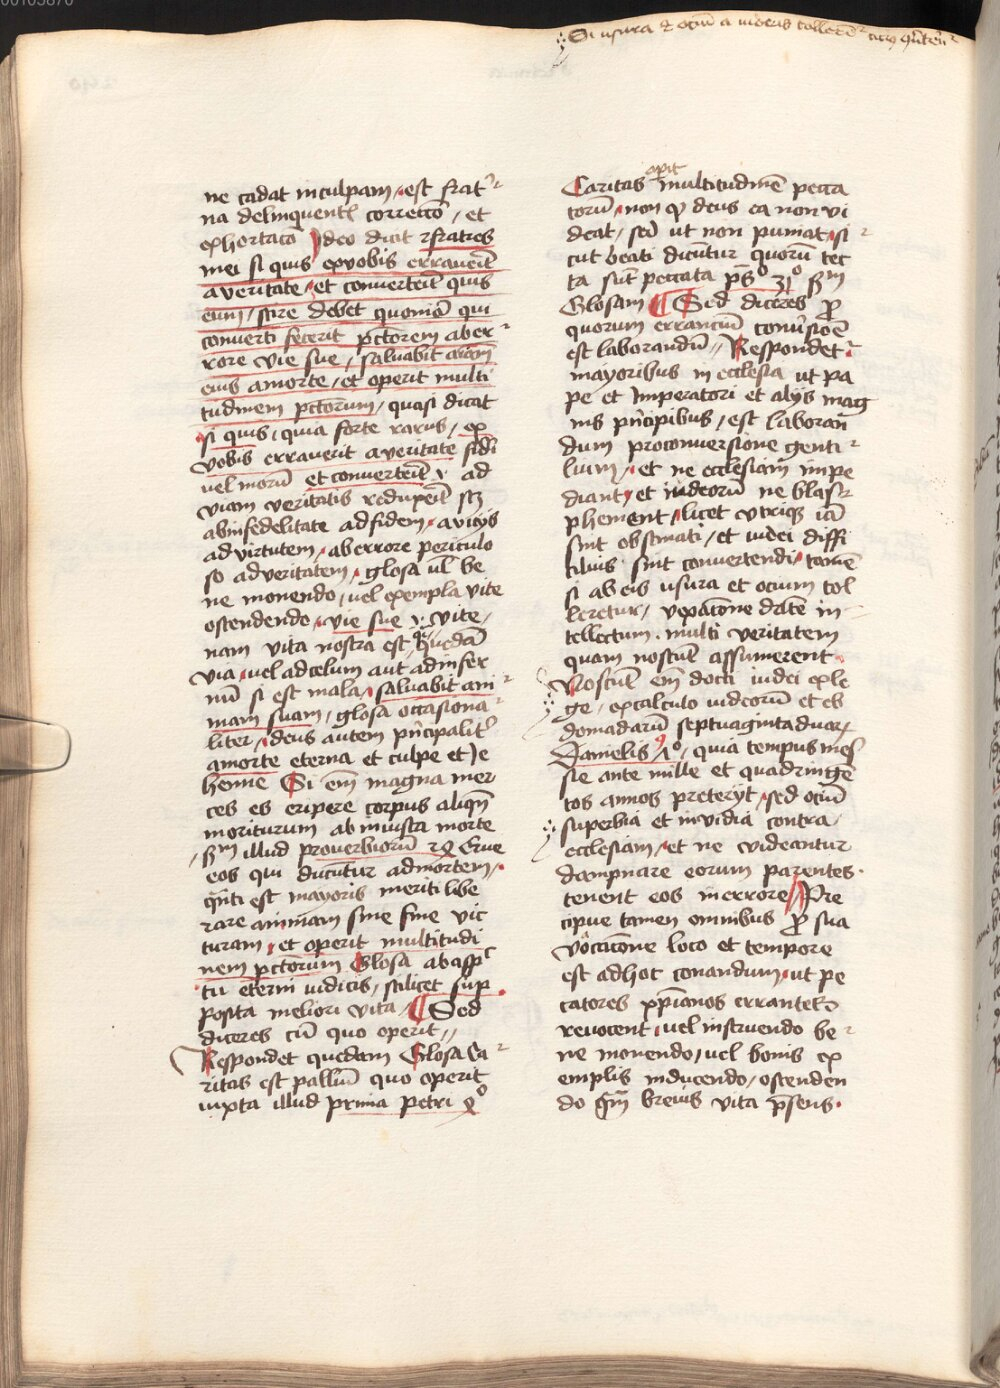 00103870
Si usura et ociū a iudeis tollerēt
ne cadat in culpam, est frat
na delinquentē correctō, et
exhortacō Ideo dicit fratres
mei si quis ex vobis erraverit
a veritate, et converterit quis
eum, scire debet quoniā qui
converti fecerit pctorem aber
rore vie sue, salvabit aīam
eius a morte, et operit multi
tudinem pctorum, quasi dicat
si quis, quia forte rarus, ex
vobis erraverit a veritate fidi
vel morū et converterit ad
viam veritatis reduxerit scz
ab infedelitate ad fidem, a vicijs
ad virtutem, ab errore periculo
so ad veritatem, glosa ul be
ne monendo, vel exempla vite
ostendendo, vie sue vite,
nam vita nostra est quedā
via, vel ad celum aut ad infer
nū si est mala, salvabit ani
mam suam, glosa occasiona
liter, deus autem prīcipalit
a morte eterna et culpe et Je
henne Si em̄ magna mer
ces es eripere corpus aliqn̄
moriturum ab iniusta morte
scdm illud proverbiorū 24 Erue
eos qui ducuntur ad mortem,
q̄nti est mayoris meriti libe
rare animam sine fine vic
turam, et operit multitudi
nem pctorum Glosa ab aspc
tu eterni iudicis, scilicet sup
posita meliori vita, Sed
diceres cū quo operit,
Respondet quedam Glosa Ca
ritas est palliū quo operit
iuxta illud prima petri 4º
Caritas opit multitudinē pecca
torū, non q deus ea non vi
deat, sed ut non puniat, si
cut beati dicūtur quorū tec
ta sūt peccata ps̄º 31º scdm
Glosam Sed diceres pro
quorum erranciū conv̄sioē
est laborandū, Respondet
mayoribus in ecclesia ut pa
pe et Imperatori et alijs mag
nis pn̄cipibus, est laboran
dum pro conversione genti
lium, et ne ecclesiam impe
diant, et iudeorū ne blas
phement, licet utrique iā
sint obstinati, et iudei diffi
cilius sint convertendi, tamē
si ab eis usura et ocium tol
leretur, vexacōne dāte in
tellectum multi veritatem
quam noscūt assumerent.
Noscūt em̄ docti iudei ex le
ge, ex calculo iudeorū et eb
domadarū septuaginta duar
Danielis 9º, quia tempus mes
sie ante mille et quadringē
tos annos preterijt, sed ociū
superbia et invidia contra
ecclesiam, et ne videantur
dampnare eorum parentes
tenent eos in errore Pre
cipue tamen omnibus pro sua
vocacōne loco et tempore
est ad hoc conandum, ut pe
catores xp̄ianos errantes
revocent, vel instruendo be
ne monendo, vel bonis ex
emplis inducendo, ostenden
do qm̄ brevis vita p̄sens.